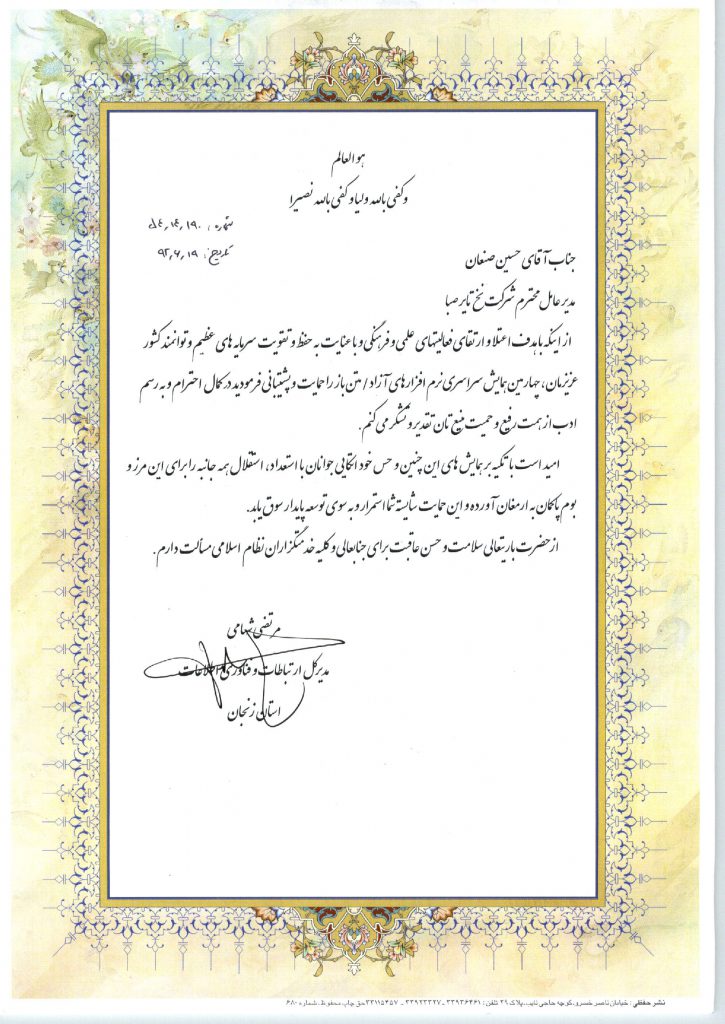 هو العالم
و کفی بالله ولیا و کفی بالله نصیرا
شماره:
تاریخ: ۹۲,۶,۱۹
جناب آقای حسین صنعان
مدیرعامل محترم شرکت نخ تایر صبا
از اینکه با هدف اعتلا و ارتقای فعالیتهای علمی و فرهنگی و با عنایت به حفظ و تقویت سرمایه های عظیم و توانمند کشور
عزیزمان، چهارمین همایش سراسری نرم افزارهای آزاد / متن باز را حمایت و پشتیبانی فرمودید در کمال احترام و به رسم
ادب از همت رفیع و حمیت منیع تان تقدیر و تشکر می کنم.
امید است با تکیه بر همایش های این چنین و حس خود اتکایی جوانان با استعداد، استقلال همه جانبه را برای این مرز و
بوم پاکمان به ارمغان آورده و این حمایت شایسته شما استمرار و به سوی توسعه پایدار سوق یابد.
از حضرت باریتعالی سلامت و حسن عاقبت برای جنابعالی و کلیه خدمتگزاران نظام اسلامی مسألت دارم.
مرتضی شهامی
مدیرکل ارتباطات و فناوری اطلاعات
استان زنجان
نشر حفظی : خیابان ناصر خسرو، کوچه حاجی نایب، پلاک ۲۹ تلفن : ۳۳۹۳۶۴۶۱ ـ ۳۳۹۲۳۳۲۷ ـ ۳۳۱۱۵۴۵۷ حق چاپ محفوظ . شماره ۶۸۰